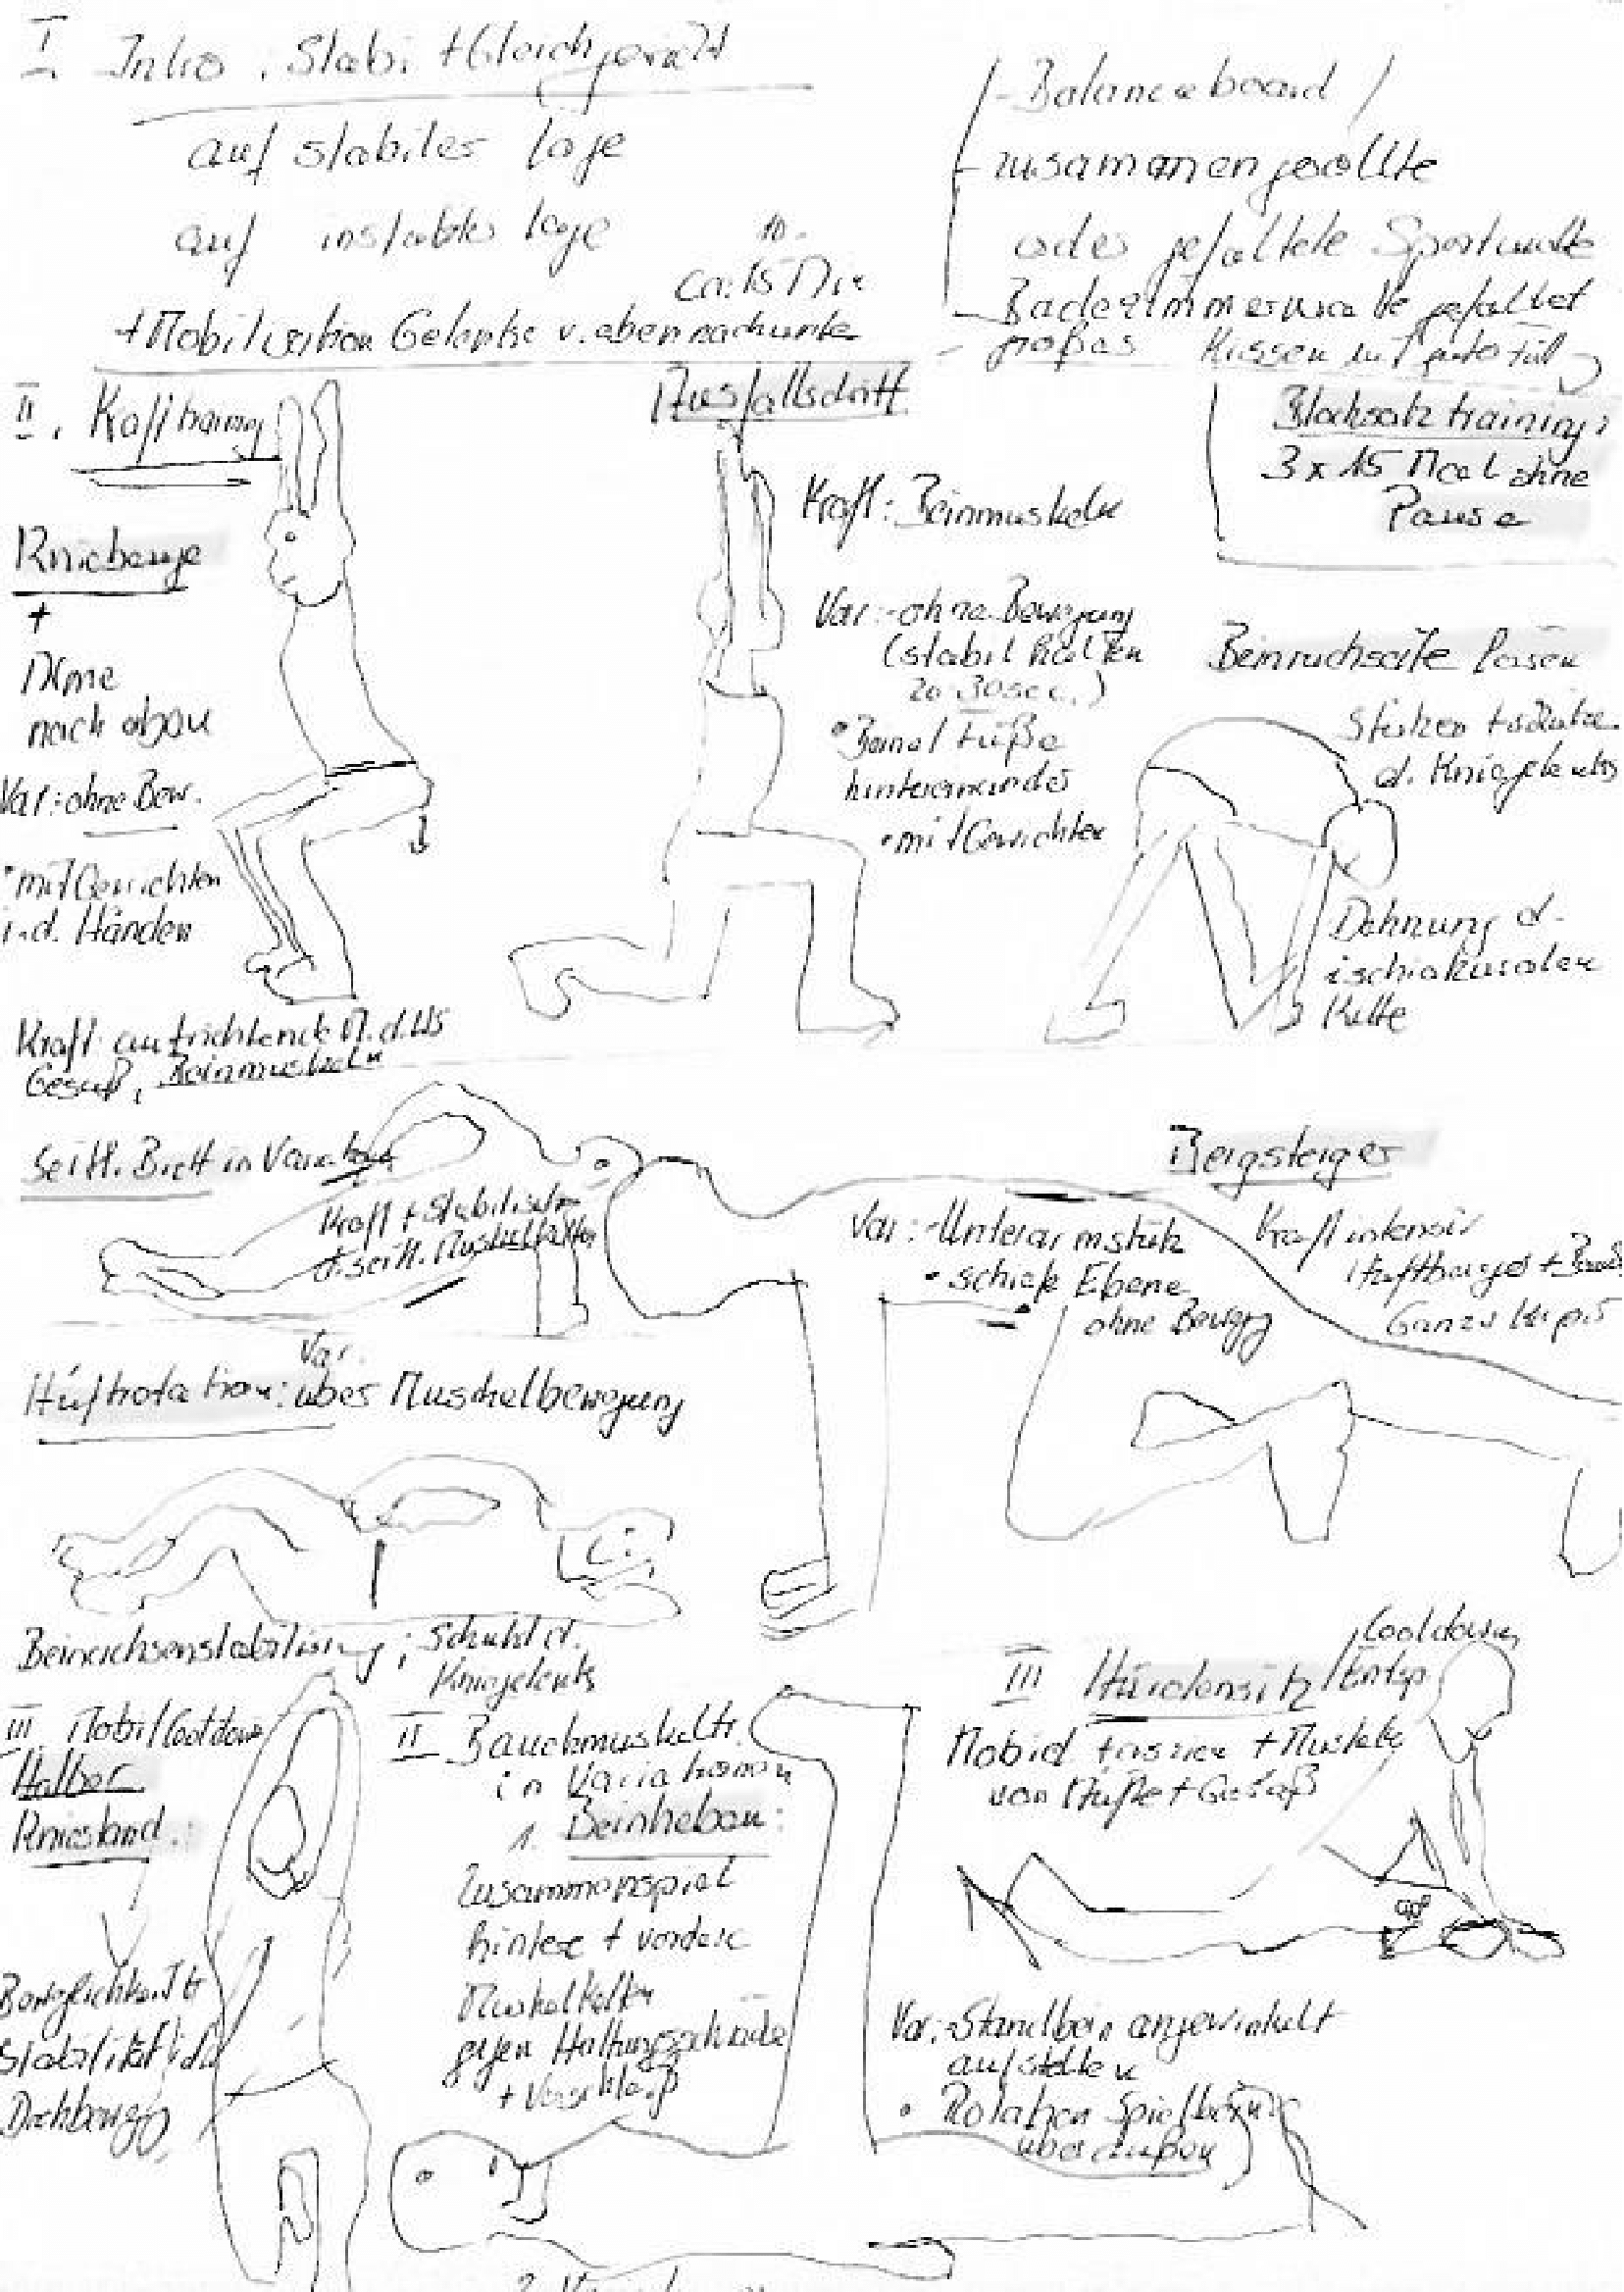 I Intro, Stabi + Gleichgewicht
auf stabiler Lage
auf instabiler Lage
10-
ca. 15 Min
+ Mobilisation Gelenke v. oben nach unten
- Balanceboard /
- zusammengerollte
oder gefaltete Sportmatte
- Badezimmermatte gefaltet
- großes Kissen mit
II. Krafttraining
Kniebeuge
+
Arme
nach oben
Var: ohne Bew.
• mit Gewichten
i.d. Händen
Kraft aufrichtende M. d. WS
Gesäß, Beinmuskeln
Ausfallschritt
Kraft: Beinmuskeln
Var: - ohne Bewegung
(stabil halten
20 30sec.)
• Beine / Füße
hintereinander
• mit Gewichten
Blocksatztraining:
3 x 15 Mal ohne
Pause
Beinrückseite lösen
d. Kniegelenks
Dehnung d.
ischiokruralen
Kette
Seitl. Brett in Variation
Kraft + Stabilisation
d. seitl. Muskelketten
Bergsteiger
Var: - Unterarmstütz
• schiefe Ebene
ohne Bewegg
Kraft intensiv
Hüftbeuger +
Ganze
Var.
Hüftrotation: über Muskelbewegung
Beinachsenstabilisierung; Schutz d.
Kniegelenks
III. Mobil/Cooldown
Halber
Kniestand:
Beweglichkeit &
Stabilität i.d.
Drehbewegg
II Bauchmuskeltr.
in Variationen
1. Beinheben:
Zusammenspiel
hintere + vordere
Muskelketten
gegen Haltungsschwäche
+ Verschleiß
III Hürdensitz / Cooldown
Entsp.
Mobil Faszien + Muskeln
von Hüfte + Gesäß
90°
Var: - Standbein angewinkelt
aufstellen
• Rotation Spielbein
über außen)